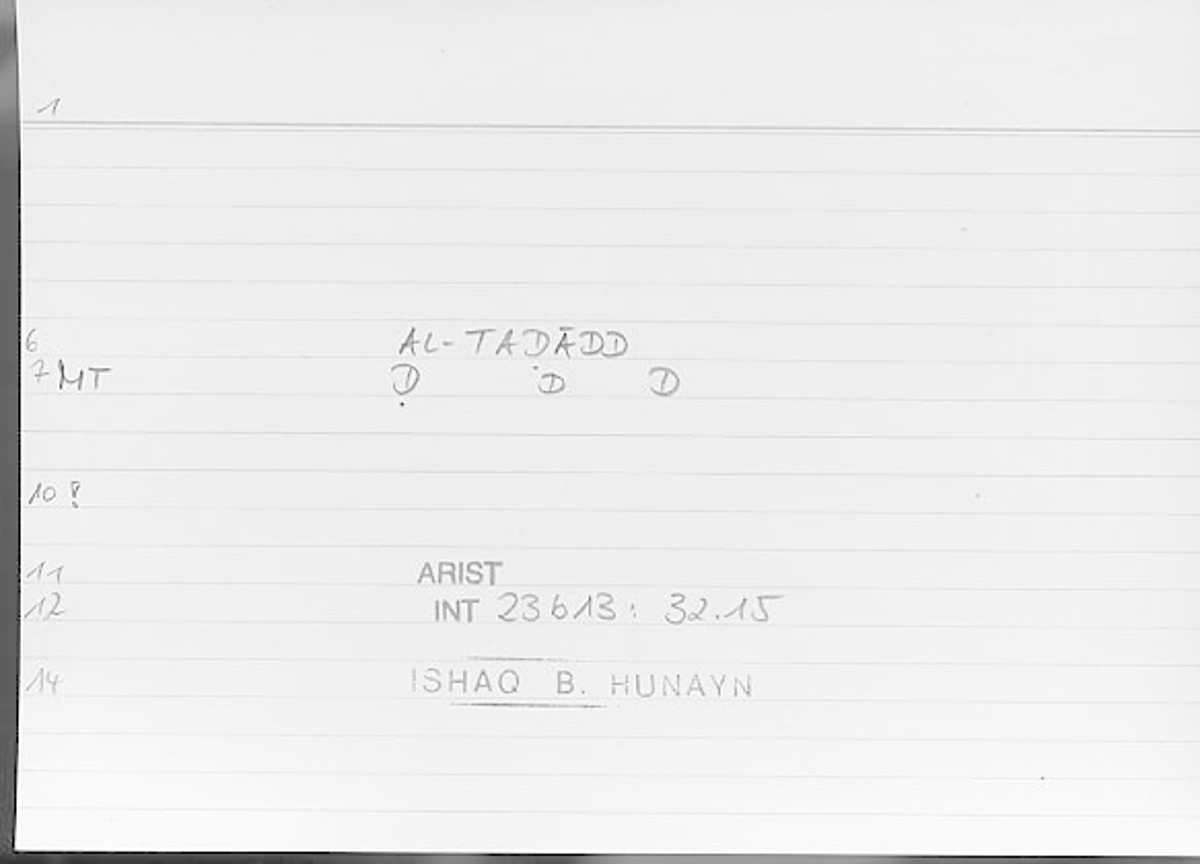 1
6 AL-TADĀDD
7 MT Ḍ D D
10 !
11 ARIST
12 INT 23613: 32.15
14 ISHAQ B. HUNAYN